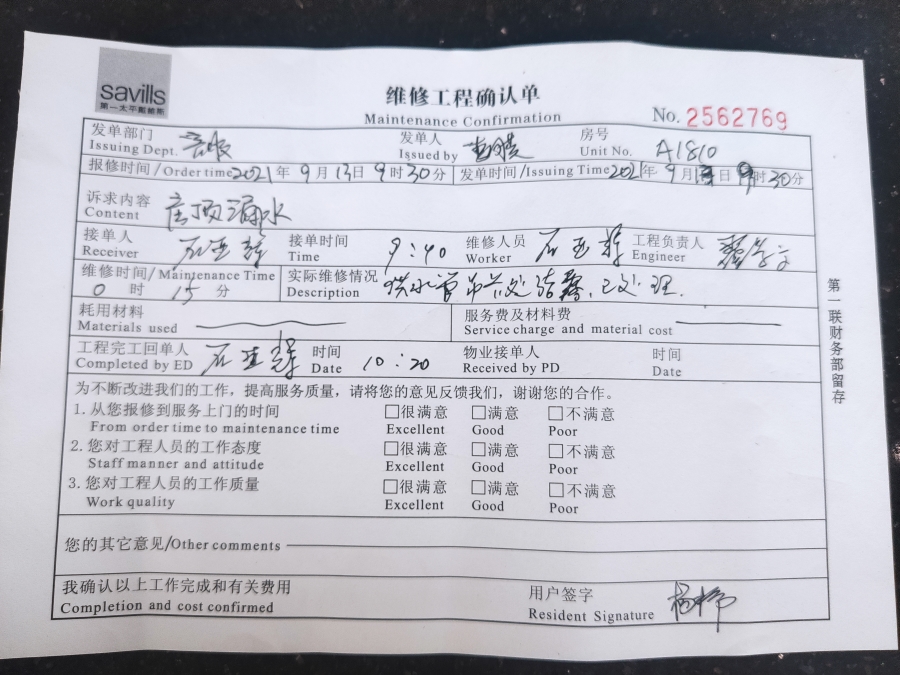 savills
第一太平戴维斯
维修工程确认单
Maintenance Confirmation
No. 2562769
发单部门 客服 发单人 房号
Issuing Dept. Issued by Unit No. A1810
报修时间/Order time 2021年9月13日9时30分 发单时间/Issuing Time 2021年9月13日9时30分
诉求内容 房顶漏水
Content
接单人 石亚辉 接单时间 9:40 维修人员 石亚辉 工程负责人
Receiver Time Worker Engineer
维修时间/Maintenance Time 实际维修情况
0时15分 Description 供水管吊兰处结露,已处理.
耗用材料 服务费及材料费
Materials used Service charge and material cost
工程完工回单人 石亚辉 时间 10:20 物业接单人 时间
Completed by ED Date Received by PD Date
为不断改进我们的工作,提高服务质量,请将您的意见反馈我们,谢谢您的合作。
1. 从您报修到服务上门的时间 □很满意 □满意 □不满意
From order time to maintenance time Excellent Good Poor
2. 您对工程人员的工作态度 □很满意 □满意 □不满意
Staff manner and attitude Excellent Good Poor
3. 您对工程人员的工作质量 □很满意 □满意 □不满意
Work quality Excellent Good Poor
您的其它意见/Other comments
我确认以上工作完成和有关费用 用户签字
Completion and cost confirmed Resident Signature
第一联财务部留存